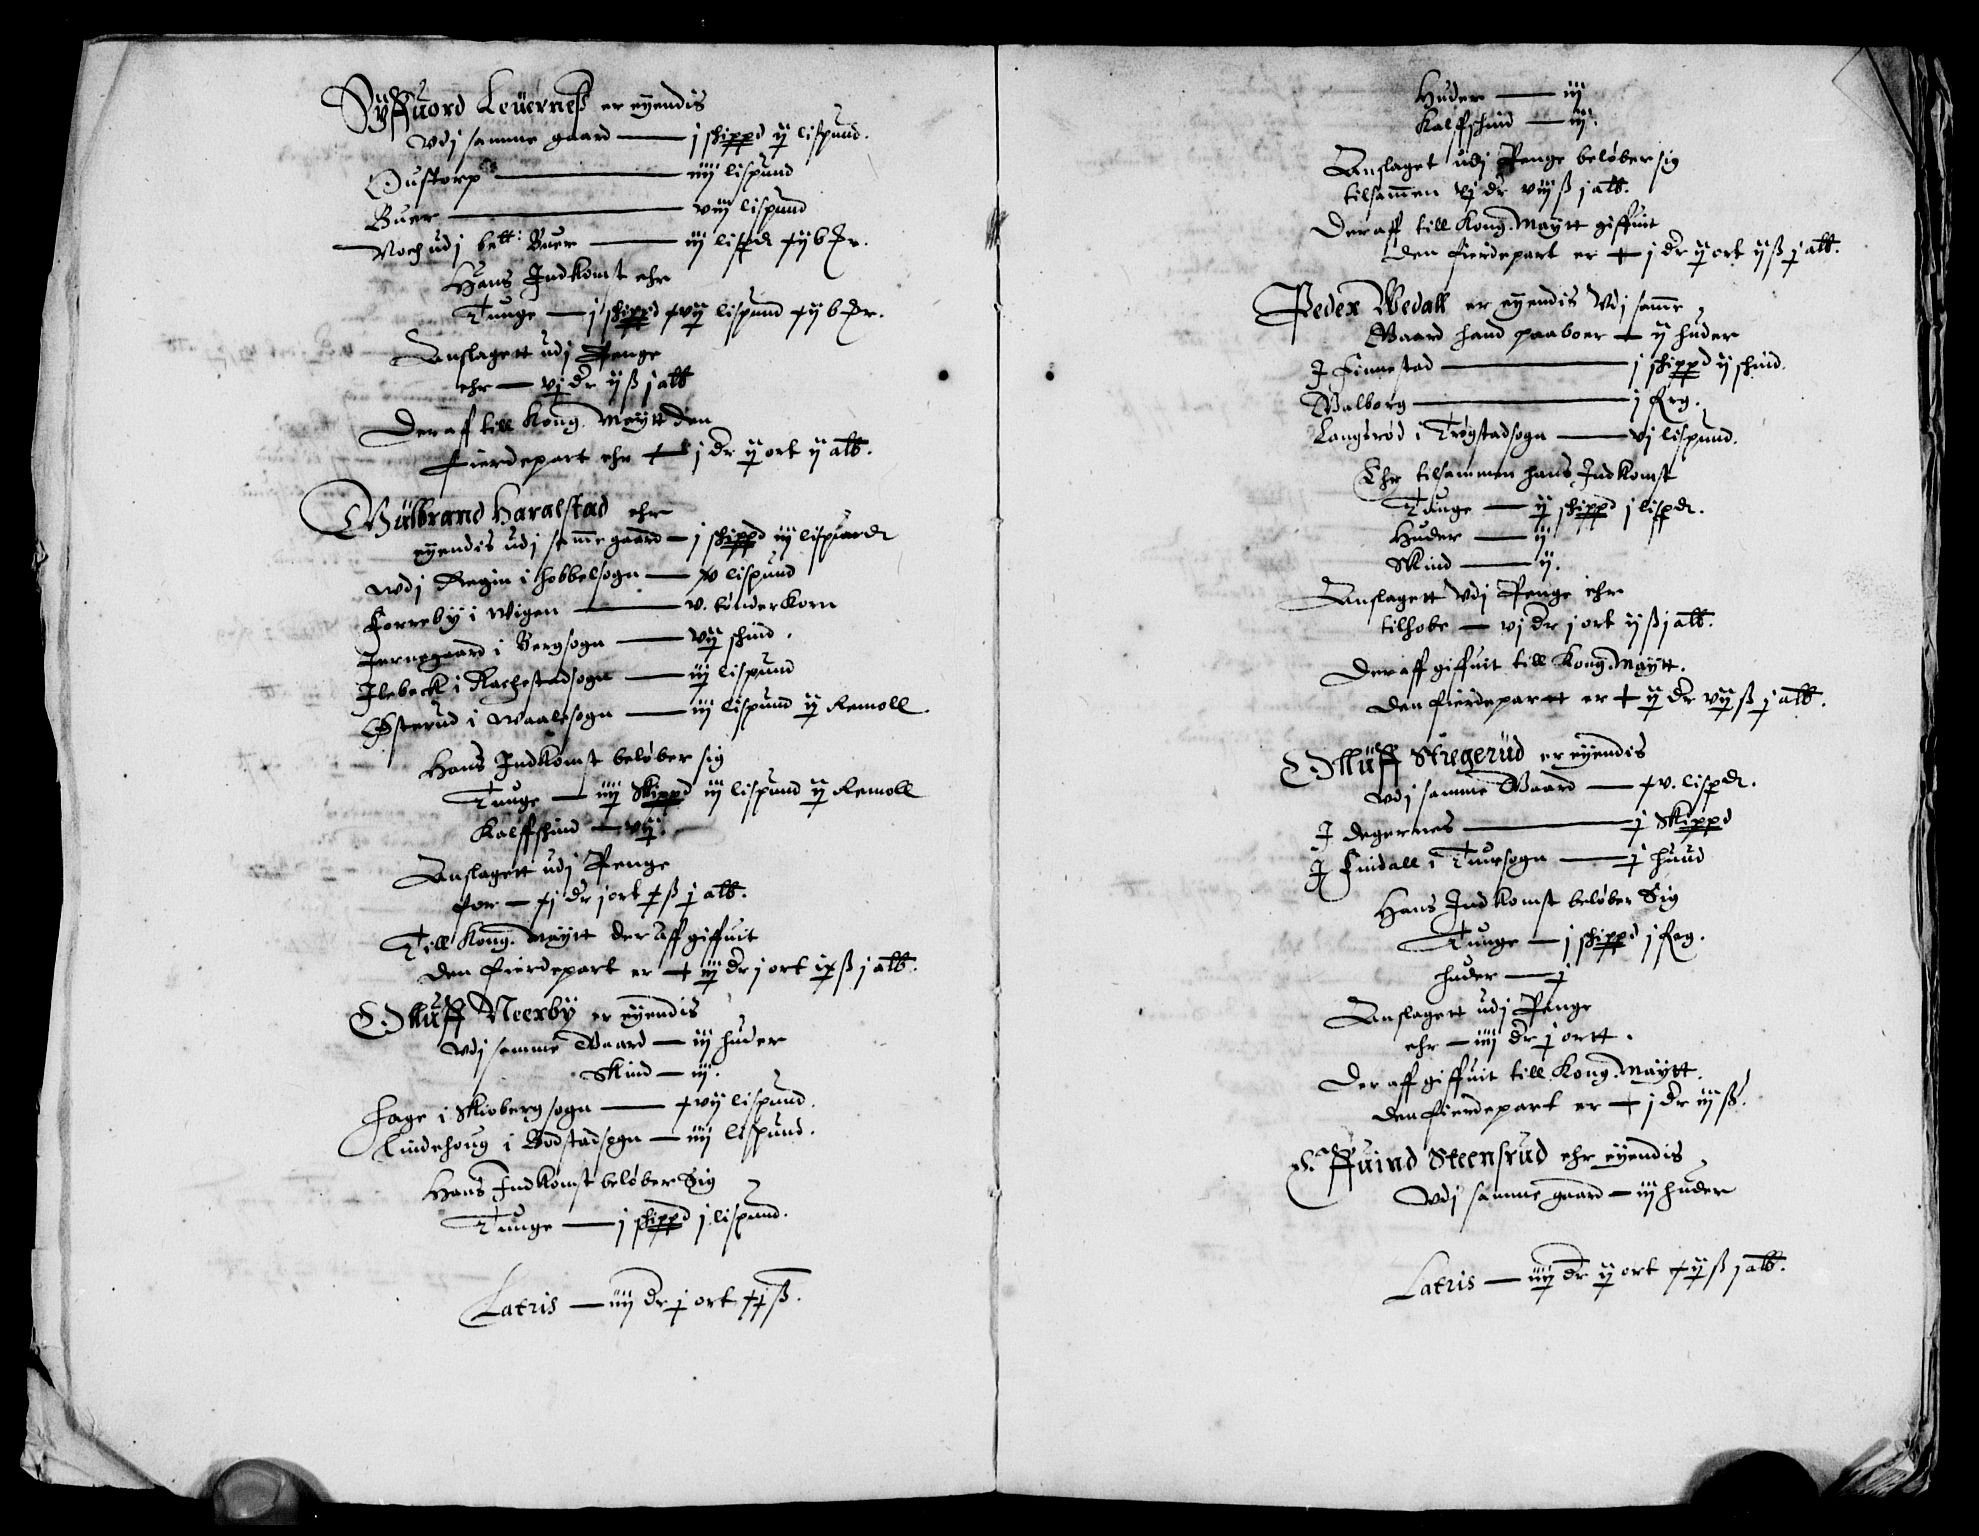 Syffuord Leuerneß er eyendis
wdj samme gaard — j skippd ij lispund.
Oustorp — iiij lispund
Buer — viij lispund
Noch udj bett: Buer — iij lispdt xij b Pr.
Hans Indkomst ehr
Tunge — j skippd xvij lispund xij b Pr.
Anslagett udj Penge
ehr — vj dr ij ß j alb
Der aff till Kong. Maÿtt den
fierdepart ehr + j dr ij ort ij alb.
Gulbrand Haralstad ehr
eyendis udj samme gaard — j skippd iij lispundt
wdj Regin i hobbelsogn — xv lispund
Torreby i Wigen — v. tønder Korn
Jernegaard i Bergsogn — vij skind.
Ilebeck i Rachestadsogn — iij lispund
Østerud i Waalesogn — iij lispund ij Remoll.
Hans Indkomst beløber sig
Tunge — iiij Skippd iij lispund ij Remoll
Kalffskind — vij.
Anslagett udj Penge
for — xj dr j ort x ß j alb.
Till Kong. Maytt der aff giffuit
den fierdepart er + iij dr j ort ix ß j alb.
Olluff Neerby er eyendis
wdj samme Gaard — iij huder
Skind — iij.
Hage i Skiobergsogn — xvij lispund.
Lindehoug i Bodstadsogn — iiij lispund.
Hans Indkomst beløber Sig
Tunge — j skippd j lispund.
Latris — iiij dr j ort xj ß.
Huder — iij
Kalffskind — iij.
Anslaget udj Penge beløber sig
tilsamen vj dr viij ß j alb.
Der aff till Kong. Maytt giffuit
den fierdepart er + j dr ij ort ij ß j alb.
Peder Wedall er eyendis Wdj same
Gaard hand paaboer + ij huder
I Finnestad — j skippd ij skind.
Walborg — j Frg.
Langsrød i Trøgstadsogn — vj lispund.
Ehr tilsammen hans Indkomst
Tunge — ij skippd j lispdt.
Huder — ij
Skind — ij.
Anslagett Vdj Penge ehr
tilhobe — vj dr j ort ij ß j alb.
Der aff giffuit till Kong. Maytt.
den fierdepartt er + ij dr vij ß j alb.
Olluff Stregerud er eyendis
wdj samme Gaard — xv. lispdt.
I degernes — j Skippd
I Lindall i Tunesogn — j huud
Hans Indkomst beløber Sig
Tunge — j skippd j Frg.
huder — j
Anslagett udj Penge
ehr — iiij dr j ortt.
Der aff giffuit till Kong. Maytt.
den fierdepart er + j dr iij ß.
Effuind Steensrud ehr eyendis
wdj samme gaard — iij huder
Latris — iiij dr ij ort xij ß j alb.